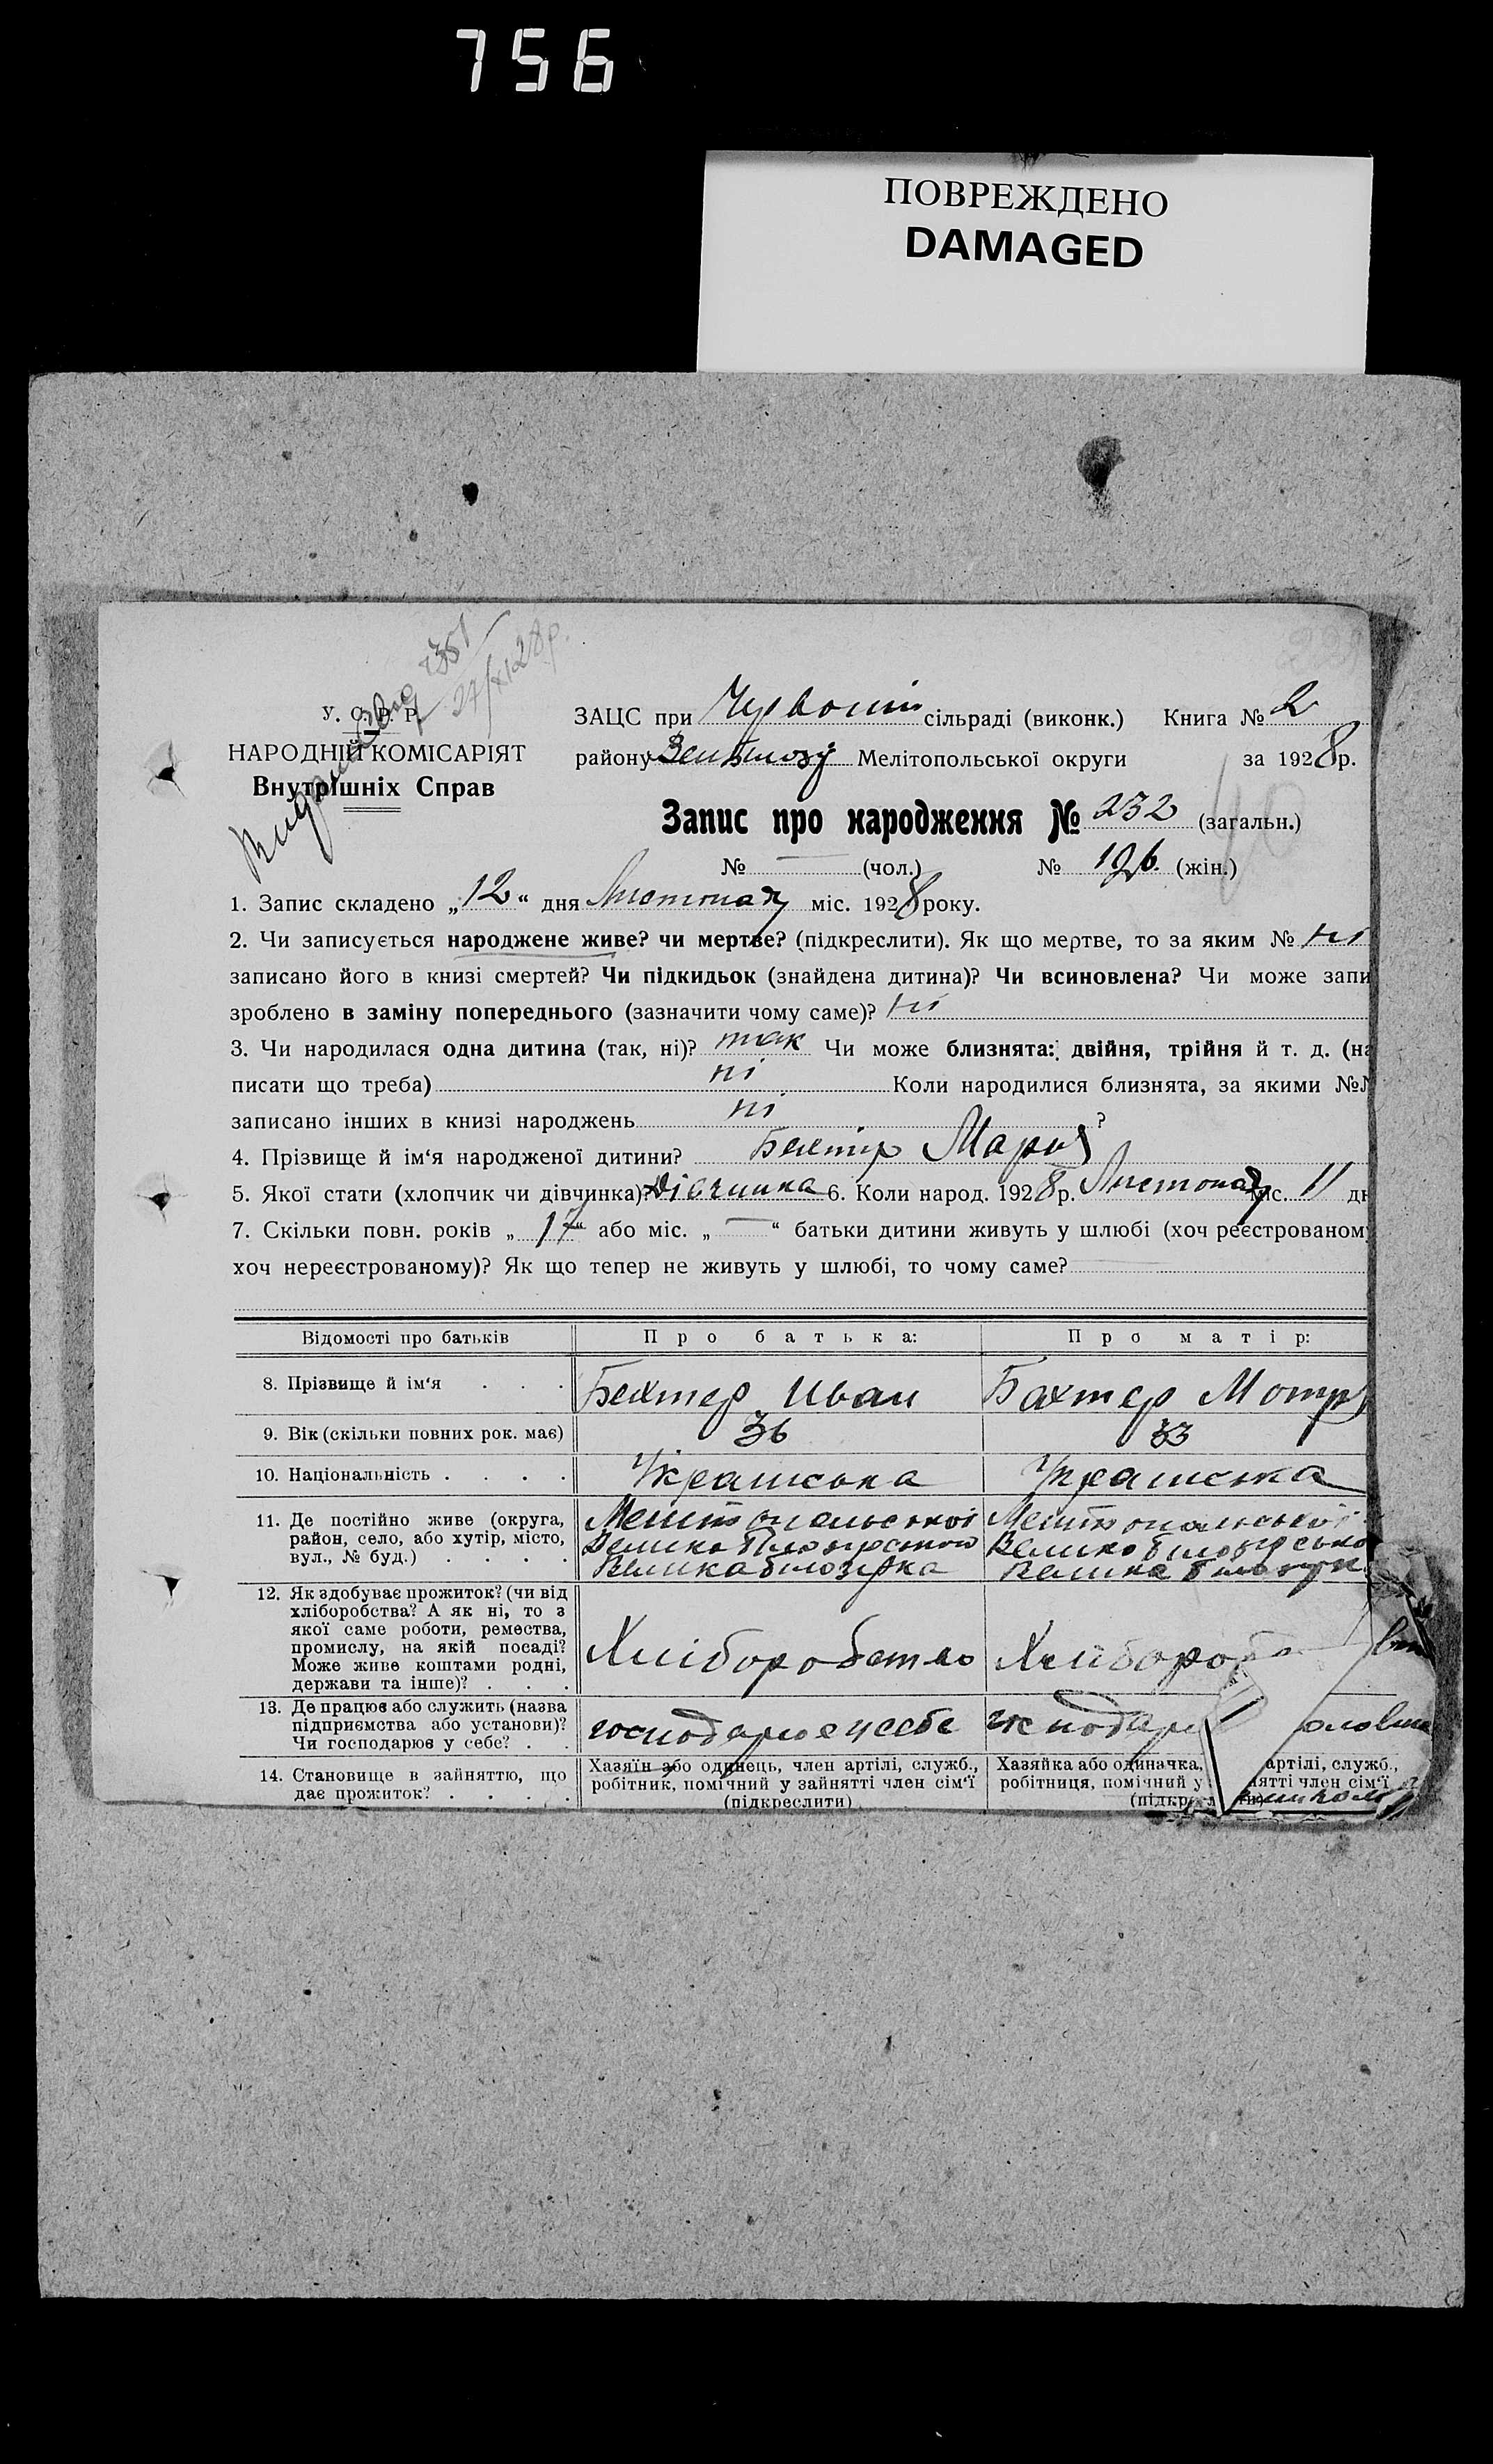 756
ПОВРЕЖДЕНО
DAMAGED
У. С. Р. Р.
НАРОДНІЙ КОМІСАРІЯТ
Внутрішніх Справ
ЗАЦС при сільраді (виконк.) Книга № 2
району Мелітопольської округи за 1928р.
Запис про народження № 232 (загальн.)
№ — (чол.) № 196. (жін.)
1. Запис складено „12“ дня Листопад міс. 1928 року.
2. Чи записується народжене живе? чи мертве? (підкреслити). Як що мертве, то за яким № ні
записано його в книзі смертей? Чи підкидьок (знайдена дитина)? Чи всиновлена? Чи може запи
зроблено в заміну попереднього (зазначити чому саме)? ні
3. Чи народилася одна дитина (так, ні)? так Чи може близнята: двійня, трійня й т. д. (на
писати що треба) ні Коли народилися близнята, за якими №№
записано інших в книзі народжень ні ?
4. Прізвище й ім‘я народженої дитини? Бехтір Марія
5. Якої стати (хлопчик чи дівчинка)? Дівчинка 6. Коли народ. 1928р. Листопад міс. 11 дн
7. Скільки повн. років „17“ або міс. „—“ батьки дитини живуть у шлюбі (хоч реєстрованому
хоч нереєстрованому)? Як що тепер не живуть у шлюбі, то чому саме? —
Відомості про батьків Про батька: Про матір:
8. Прізвище й ім‘я . . . Бехтер Иван Бахтер Мотря
9. Вік (скільки повних рок. має) 36 33
10. Національність . . . . Украінська Украінська
11. Де постійно живе (округа,
район, село, або хутір, місто,
вул., № буд.) . . . .
Мелітопальської Мелітопальської
Велико Білозірської Велико білозірсько
Великабілозірка Велика білозірк
12. Як здобуває прожиток? (чи від
хліборобства? А як ні, то з
якої саме роботи, ремества,
промислу, на якій посаді?
Може живе коштами родні,
держави та інше)? . . .
Хліборобство Хлібороб
13. Де працює або служить (назва
підприємства або установи)?
Чи господарює у себе? . .
господарює у себе господар
14. Становище в зайняттю, що
дає прожиток? . . . .
Хазяїн або одинець, член артілі, служб.,
робітник, помічний у зайнятті член сім‘ї
(підкреслити)
Хазяйка або одиначка, артілі, служб.,
робітниця, помічний у нятті член сім‘ї